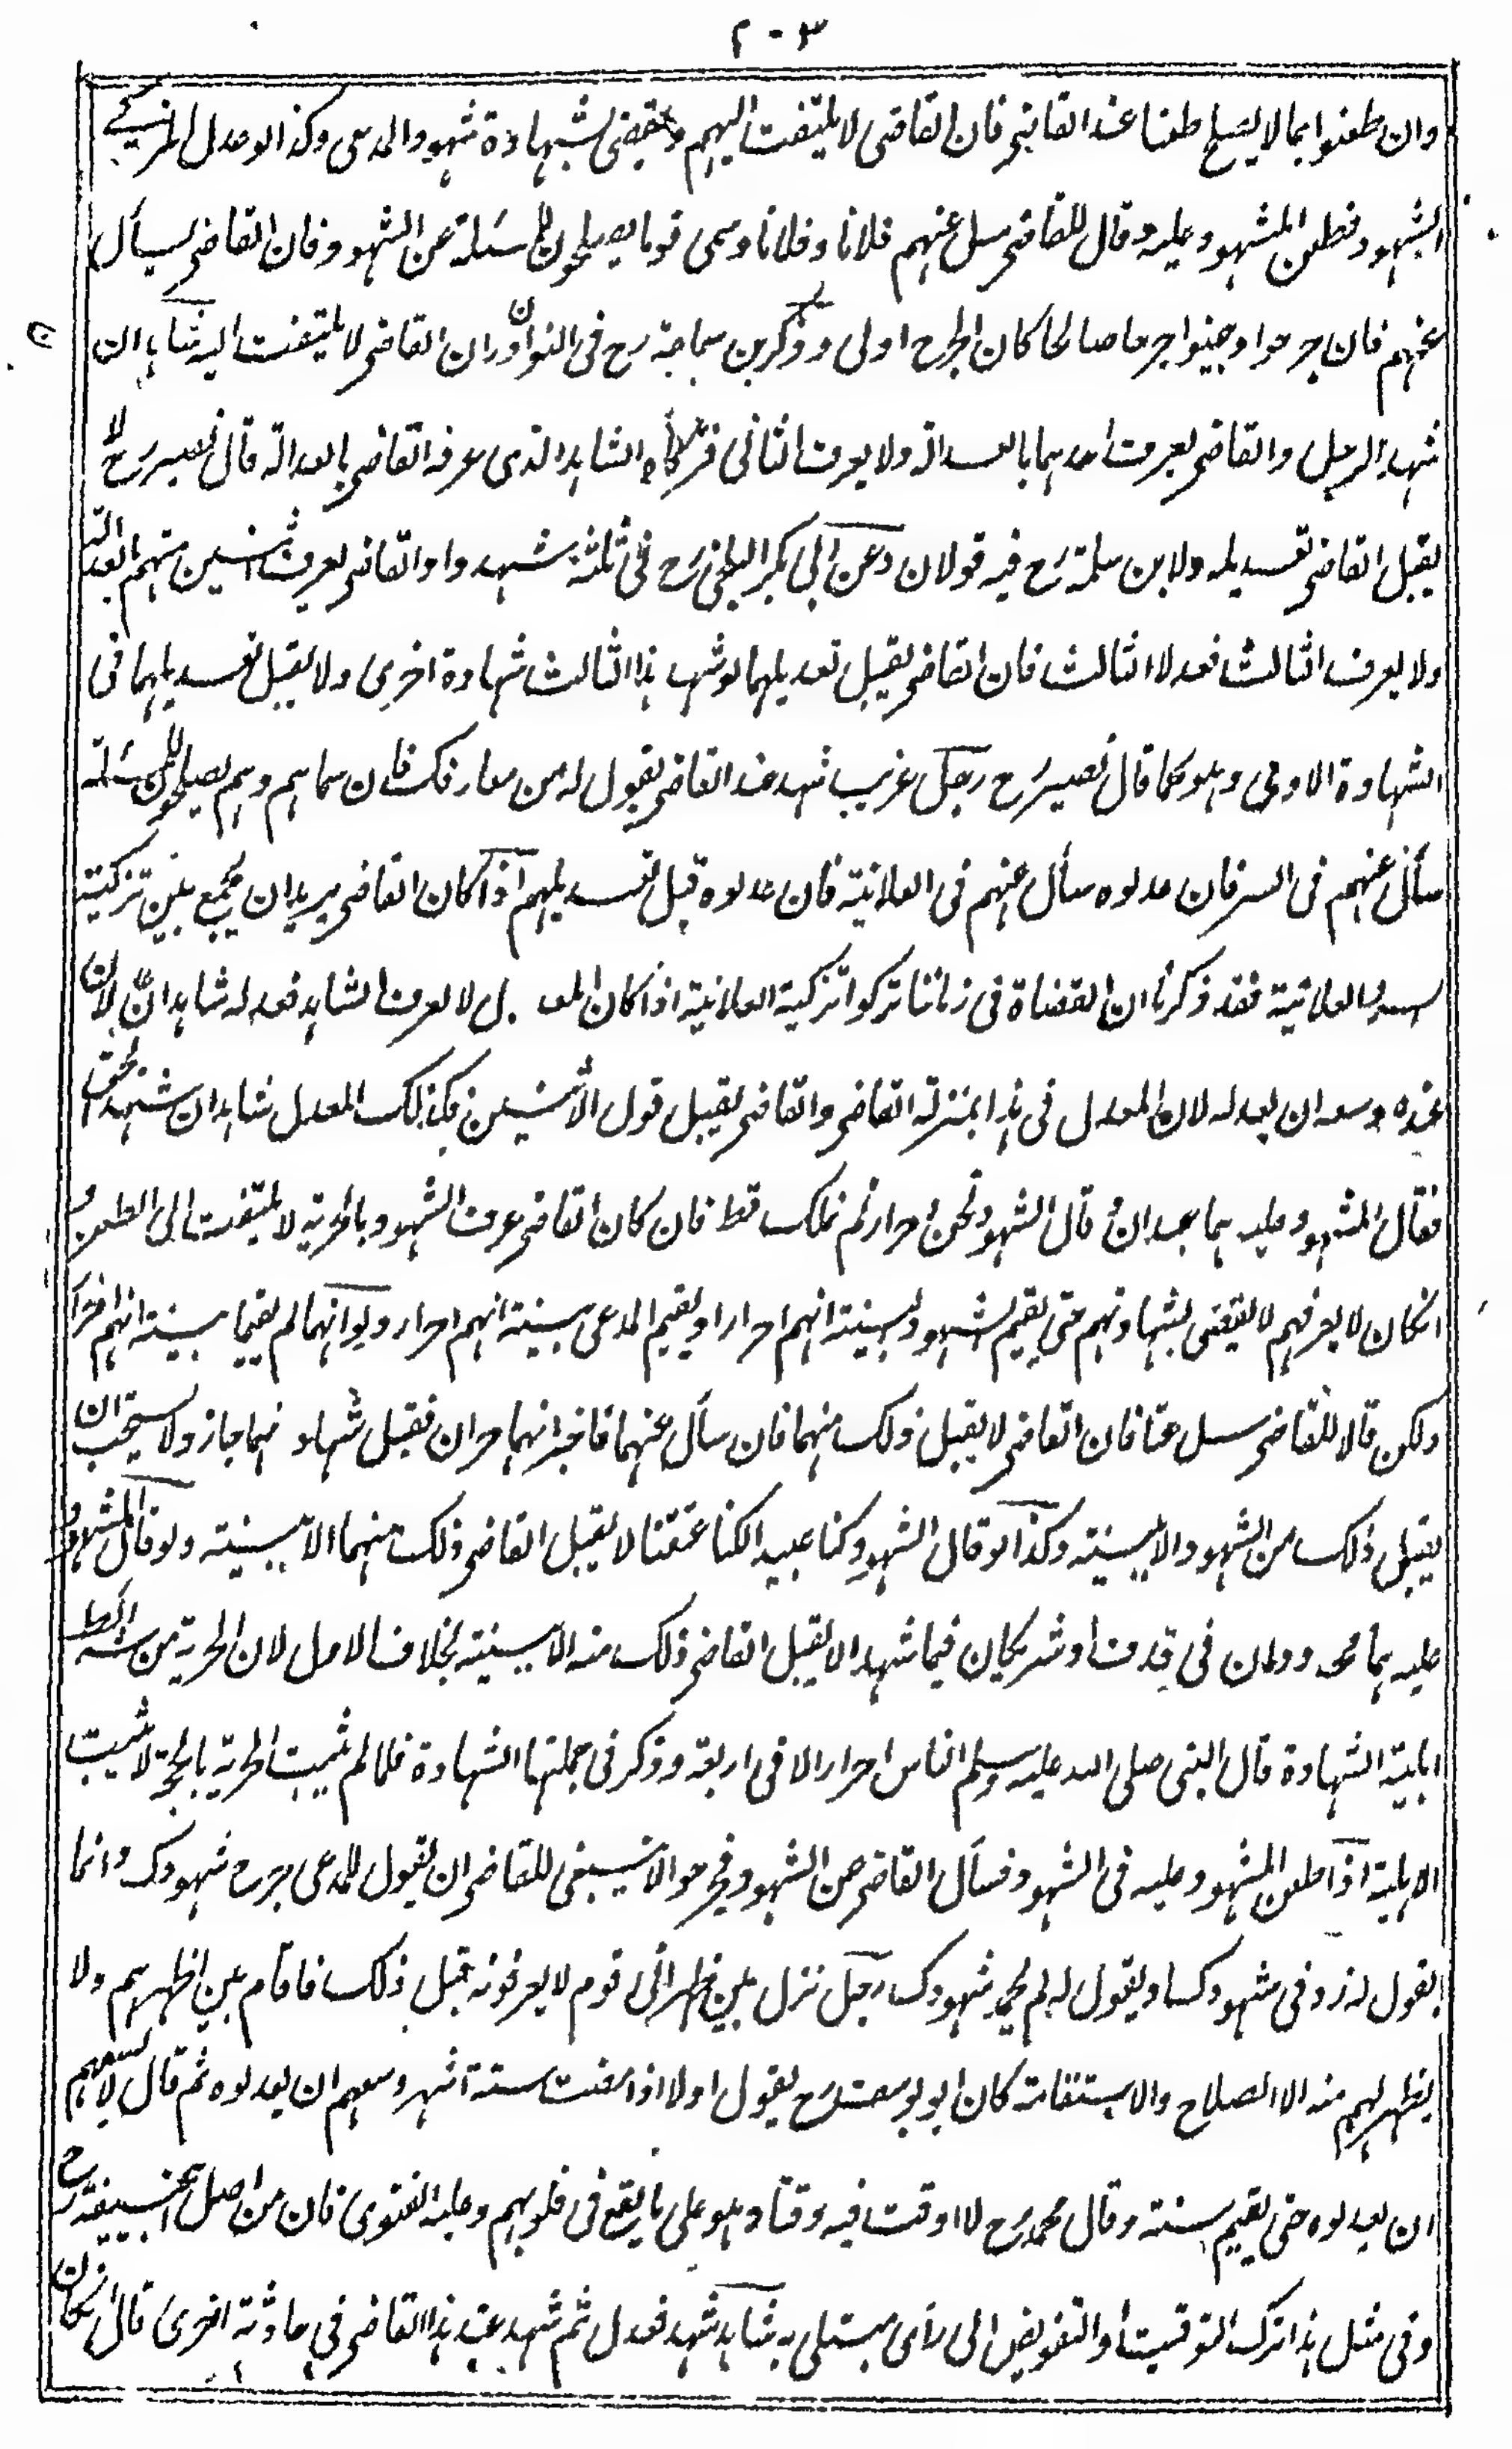 ٢٠٣
وان طعنوا بما لا يصلح طعنا عند القاضى فان القاضى لا يلتفت اليهم ويقضى بشهادة شهود المدعى وكذا لو عدل المزكى
الشهود فطعن المشهود عليه وقال للقاضى سل عنهم فلانا وفلانا وسمى قوما يصلحون للمسئلة عن الشهود فان القاضى يسأل
عنهم فان جرحوا وبينوا جرحا صالحا كان الجرح اولى وذكر بن سماعة رح فى النوادر ان القاضى لا يلتفت اليه شاهدان
شهدا لرجل والقاضى يعرف احدهما بالعدالة ولا يعرف الثانى فزكاه الشاهد الذى عرفه القاضى بالعدالة قال نصير رح لا
يقبل القاضى تعديله ولابن سلمة رح فيه قولان وعن ابى بكر البلخى رح فى ثلثة شهدوا والقاضى يعرف اثنين منهم بالعدالة
ولا يعرف الثالث فعدلا الثالث فان القاضى يقبل تعديلهما لو شهد هذا الثالث شهادة اخرى ولا يقبل تعديلهما فى
الشهادة الاولى وهو كما قال نصير رح رجل غريب شهد عند القاضى يقول له من معارفك فان سماهم وهم يصلحون للمسئلة
سأل عنهم فى السر فان عدلوه سأل عنهم فى العلانية فان عدلوه قبل تعديلهم اذا كان القاضى يريد ان يجمع بين تزكية
السر والعلانية فقد ذكرنا ان القضاة فى زماننا تركوا تزكية العلانية اذا كان المعدل لا يعرف الشاهد فعدله شاهدان
عنده وسعه ان يعدله لان المعدل فى هذا بمنزلة القاضى والقاضى يقبل قول الاثنين فكذلك المعدل شاهدان شهدا بحق
فقال المشهود عليه هما عبدان و قال الشهود نحن احرار لم نملك قط فان كان القاضى عرف الشهود بالحرية لا يلتفت الى الطعن و
انكان لا يعرفهم لا يقضى بشهادتهم حتى يقيم الشهود بينة انهم احرار او يقيم المدعى بينة انهم احرار ولو انهما لم يقيما بينة انهم احرار
ولكن قالا للقاضى سل عنا فان القاضى لا يقبل ذلك منهما فان سأل عنهما فاخبر انهما حران فقبل شهادتهما جاز ولا يستحب ان
يقبل ذلك من الشهود الا ببينة وكذا لو قال الشهود كنا عبيدا لكنا عتقنا لا يقبل القاضى ذلك منهما الا ببينة ولو قال المشهود
عليه هما محدودان فى قذف او شريكان فيما شهدا لا يقبل القاضى ذلك منه الا ببينة بخلاف الاول لان الحرية من شرائط
اهلية الشهادة قال النبى صلى الله عليه وسلم الناس احرار الا فى اربعة وذكر فى جملتها الشهادة فلما لم تثبت الحرية بالحجة لا تثبت
الاهلية اذا طعن المشهود عليه فى الشهود فسأل القاضى عن الشهود فجرحوا لا ينبغى للقاضى ان يقول للمدعى جرح شهودك وانما
يقول له زد فى شهودك او يقول له لم يحمد شهودك رجل نزل بين ظهرانى قوم لا يعرفونه قبل ذلك فاقام بين اظهرهم ولا
يظهر لهم منه الا الصلاح والاستقامة كان ابو يوسف رح يقول اولا اذا مضت ستة اشهر وسعهم ان يعدلوه ثم قال لا يسعهم
ان يعدلوه حتى يقيم سنة وقال محمد رح لا اوقت فيه وقتا وهو على ما يقع فى قلوبهم وعليه الفتوى فان من اصل ابى حنيفة رح
وفى مثل هذا ترك التوقيت والتفويض الى رأى مبتلى به شاهد شهد فعدل ثم شهد عند هذا القاضى فى حادثة اخرى قال ان كان